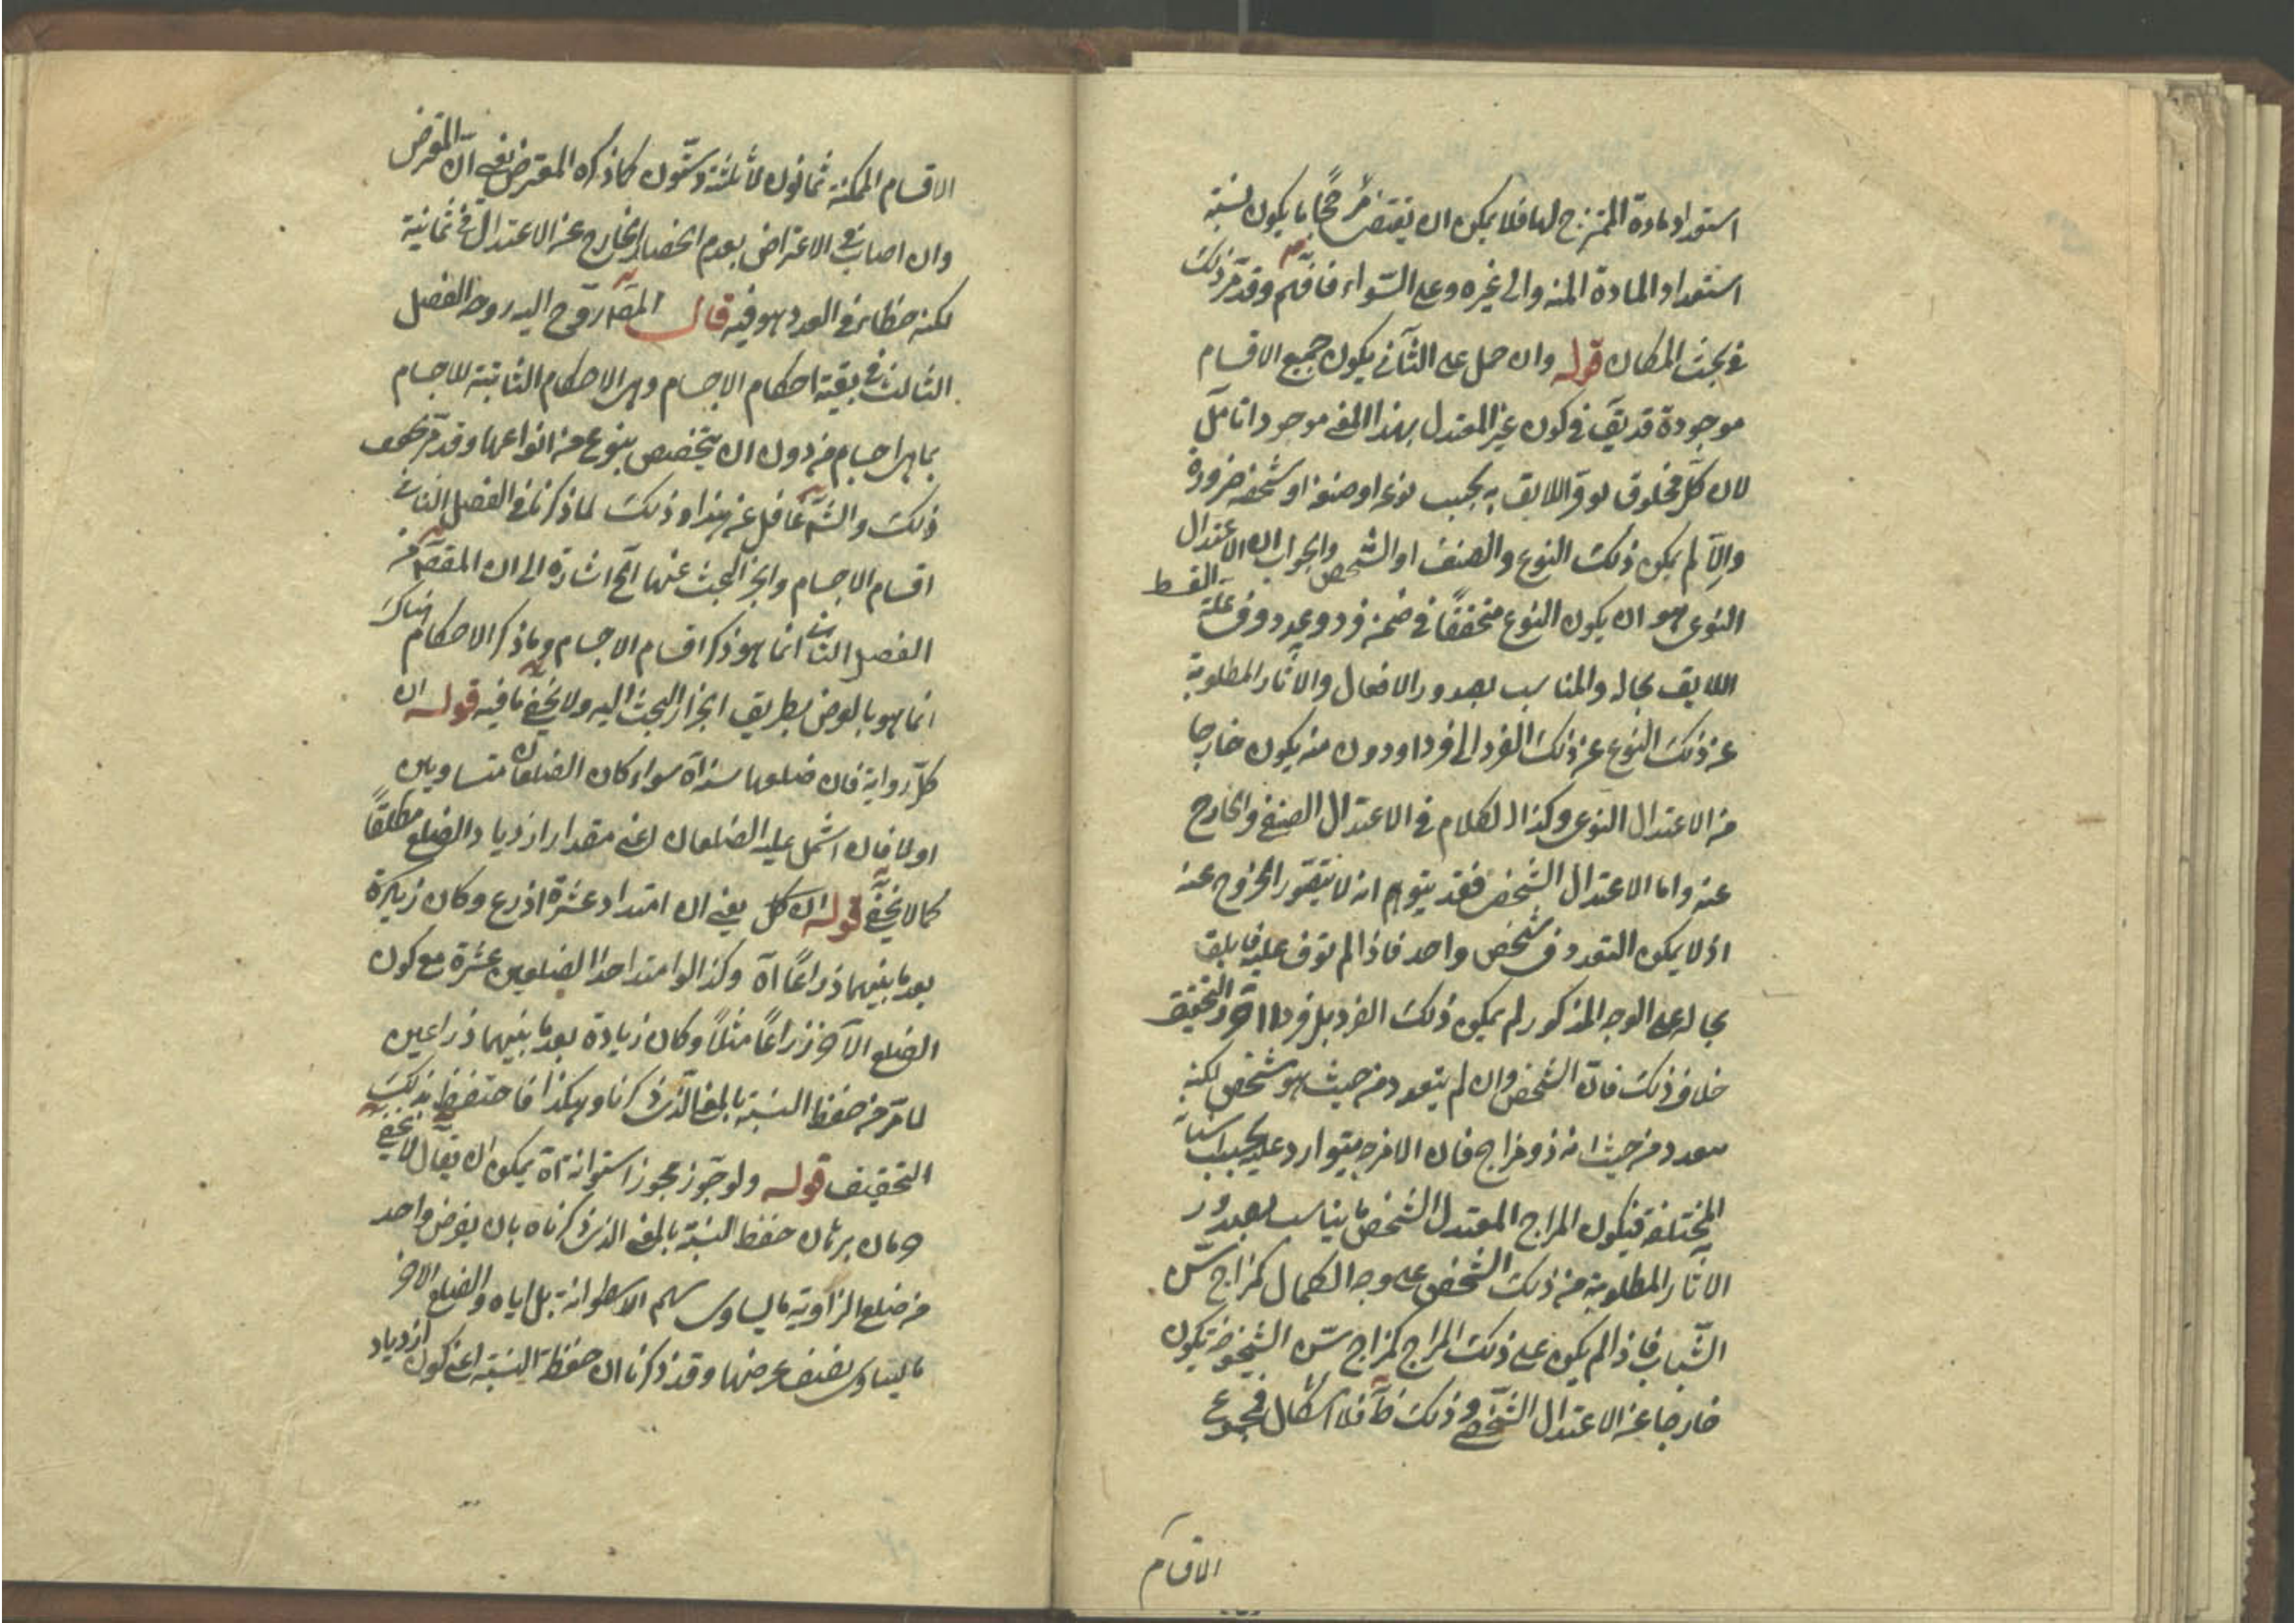 استعداد مادة الممتزج لها فلا يمكن ان يقتضى مرجحا ما يكون نسبته
استعداد المادة اليه والى غيره وعلى السّواء فافهم وقد مر ذلك
فى بحث المكان قوله وان حمل على الثانى يكون جميع الاقسام
موجودة قد يق فى كون غير المعتدل بهذا المعنى موجودا تامّل
لان كل مخلوق لو فر اللايق به بحسب نوعه او صنفه او شخصه ضرورة
والّا لم يكن ذلك النوع والصنف او الشخص والجواب ان الاعتدال
النوعى هو ان يكون النوع متحققًا فى ضمن فرد وعدد وفر عليه القسط
اللايق بحاله والمناسب بصدور الافعال والاثار المطلوبة
عن ذلك النوع عن ذلك الفرد الى فرد اودون منه يكون خارجا
من الاعتدال النوعى وكذا الكلام فى الاعتدال الصنفى والخارج
عنه واما الاعتدال الشخصى فقد يتوهم انه لا يتصور الخروج عنه
اذ لا يمكن التعدد فى شخص واحد فاذا لم يوفر عليه ما يليق
بحاله على الوجه المذكور لم يكن ذلك الفرد بل فردا اخر والتحقيق
خلاف ذلك فانّ الشخص وان لم يتعدد من حيث هو شخص لكنه
متعدد من حيث انه ذو مزاج فان الامزجة يتوارد عليه بحسب اسنانه
المختلفة فيكون المزاج المعتدل الشخصى ما يناسب بصدور
الاثار المطلوبة من ذلك الشخص على وجه الكمال كمزاج سّن
الشّباب فاذا لم يكن على ذلك المزاج كمزاج سّن الشيخوخة يكون
خارجا عن الاعتدال الشخصى وذلك ظ فلا اشكال فمجموع
الاقسام
الاقسام الممكنة ثمانون لا ثلثة وستّون كما ذكره المعترض يعنى انّ المعترض
وان اصاب فى الاعتراض بعدم انحصار الخارج عن الاعتدال فى ثمانية
لكنه خطا فى العدد هو فيه قال المص روّح اليه روحه الفصل
الثالث فى بقية احكام الاجسام وهى الاحكام الثابتة للاجسام
بما هى اجسام من دون ان يتخصص بنوع من انواعها وقد مر
ذلك والش غافل عن هذا وذلك لما ذكرنا فى الفصل الثانى
اقسام الاجسام وانجز البحث عنها الخ اشارة الى ان المقص من
الفصل الثانى انما هو ذكر اقسام الاجسام وما ذكر الاحكام هناك
انما هو بالعرض بطريق انجرار البحث اليه ولا يخفى ما فيه قوله ان
كل زواية فان ضلعها سذاة سواء كان الضلعان متساويين
او لا فان اشتمل عليه الضلعان اعنى مقدار ازدياد الضلع مطلقًا
كما لا يخفى قوله ان كل يعنى ان امتداد عشرة اذرع وكان زيادة
بعد ما بينهما ذراعًا اه وكذا لو امتد احد الضلعين عشرة مع كون
الضلع الاخر ذراعًا مثلًا وكان زيادة بعد ما بينهما ذراعين
لما مر من حفظ النسبة بالمعنى الذى ذكرنا وهكذا فاحتفظ بذلك
التحقيق قوله ولو جوّز مجوز استوانة اه يمكن ان يقال لا يخفى
جريان برهان حفظ النسبة بالمعنى الذى ذكرناه بان يفرض واحد
من ضلع الزاوية ما يساوى سهم الاسطوانة بل اياه والضلع الاخر
ما يساوى نصف عرضها وقد ذكرنا ان حفظ النسبة اعنى كون ازدياد